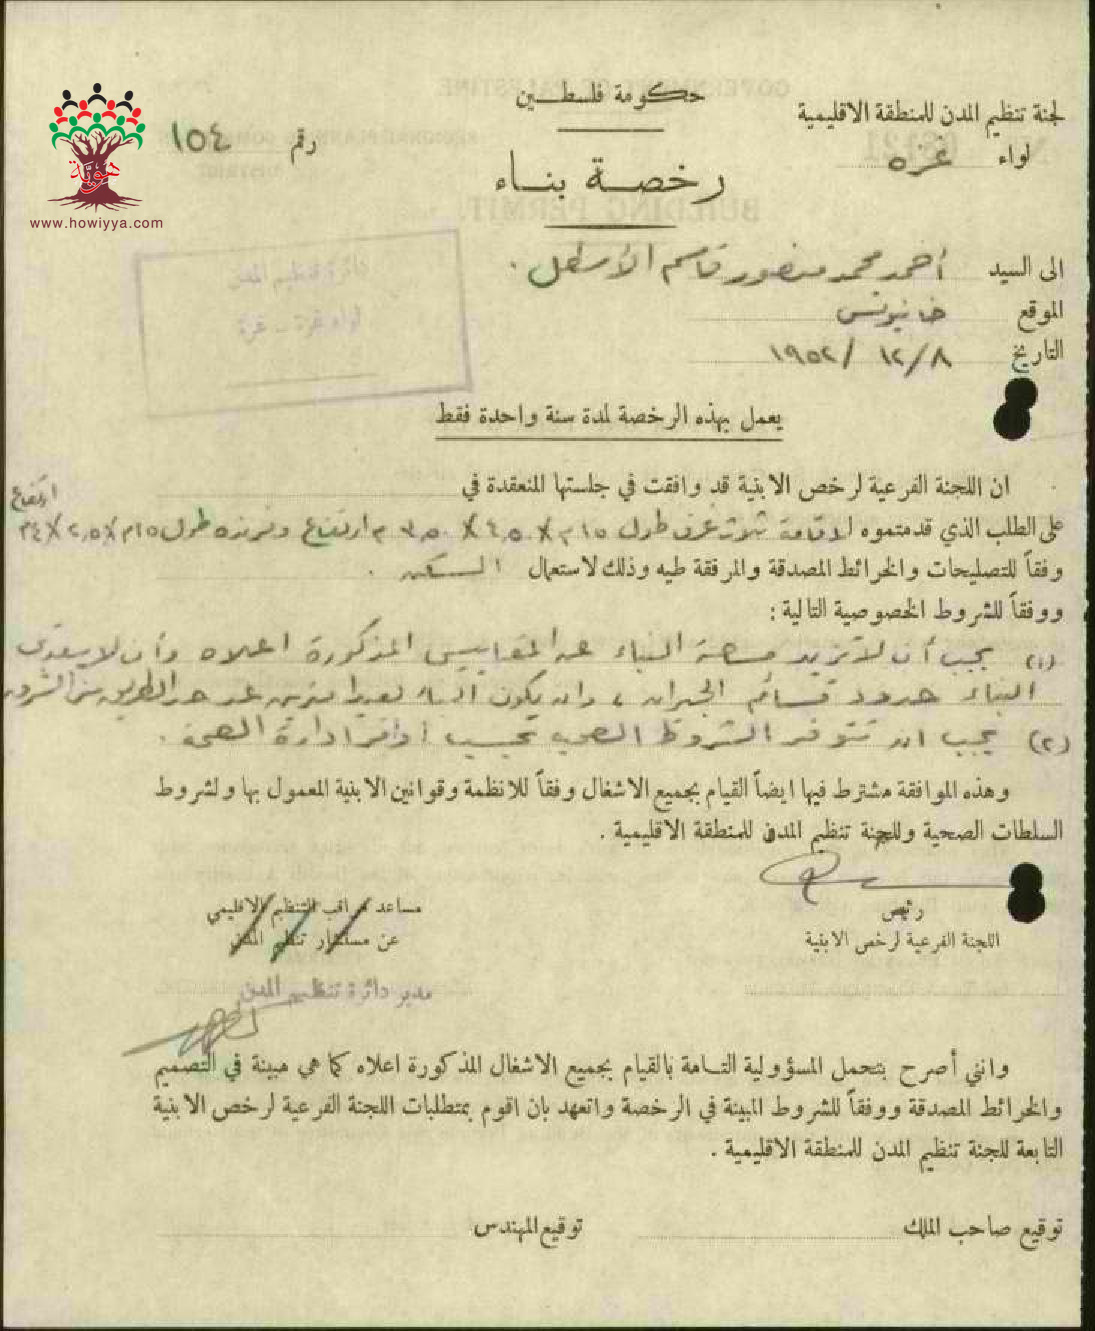 حكومة فلسطين
لجنة تنظيم المدن للمنطقة الاقليمية
لواء غزه
رقم ١٥٤
هوية
www.howiyya.com
رخصة بناء
الى السيد أحمد محمد منصور قاسم الأسطل .
الموقع خانيونس
التاريخ ١٩٥٢/ ١٢/٨
دائرة تنظيم المدن
لواء غزة - غزة
يعمل بهذه الرخصة لمدة سنة واحدة فقط
ان اللجنة الفرعية لرخص الابنية قد وافقت في جلستها المنعقدة في
على الطلب الذي قدمتموه لاقامة ثلاث غرف طول ٥١٥ X ٤,٥٠ X ٣,٥٠ م ارتفاع وفرنده طول ٥١٥م X ٢,٥ X ٣٤ ارتفاع
وفقاً للتصليحات والخرائط المصدقة والمرفقة طيه وذلك لاستعمال السكن .
ووفقاً للشروط الخصوصية التالية :
(١) يجب أن لا تزيد مساحة البناء عن المقاييس المذكورة اعلاه وأن لا يتعدى
البناء حدود قسائم الجيران ، وان يكون البناء بعيدا مترين عن حد الطريق من الشرق
(٢) يجب ان تتوفر الشروط الصحيه بحسب أوامر ادارة الصحة .
وهذه الموافقة مشترط فيها ايضاً القيام بجميع الاشغال وفقاً للانظمة وقوانين الابنية المعمول بها ولشروط
السلطات الصحية وللجنة تنظيم المدن للمنطقة الاقليمية .
رئيس
اللجنة الفرعية لرخص الابنية
مساعد مراقب التنظيم الاقليمي
عن مستشار تنظيم المدن
مدير دائرة تنظيم المدن
وانني أصرح بتحمل المسؤولية التامة بالقيام بجميع الاشغال المذكورة اعلاه كما هي مبينة في التصميم
والخرائط المصدقة ووفقاً للشروط المبينة في الرخصة واتعهد بان اقوم بمتطلبات اللجنة الفرعية لرخص الابنية
التابعة للجنة تنظيم المدن للمنطقة الاقليمية .
توقيع صاحب الملك
توقيع المهندس